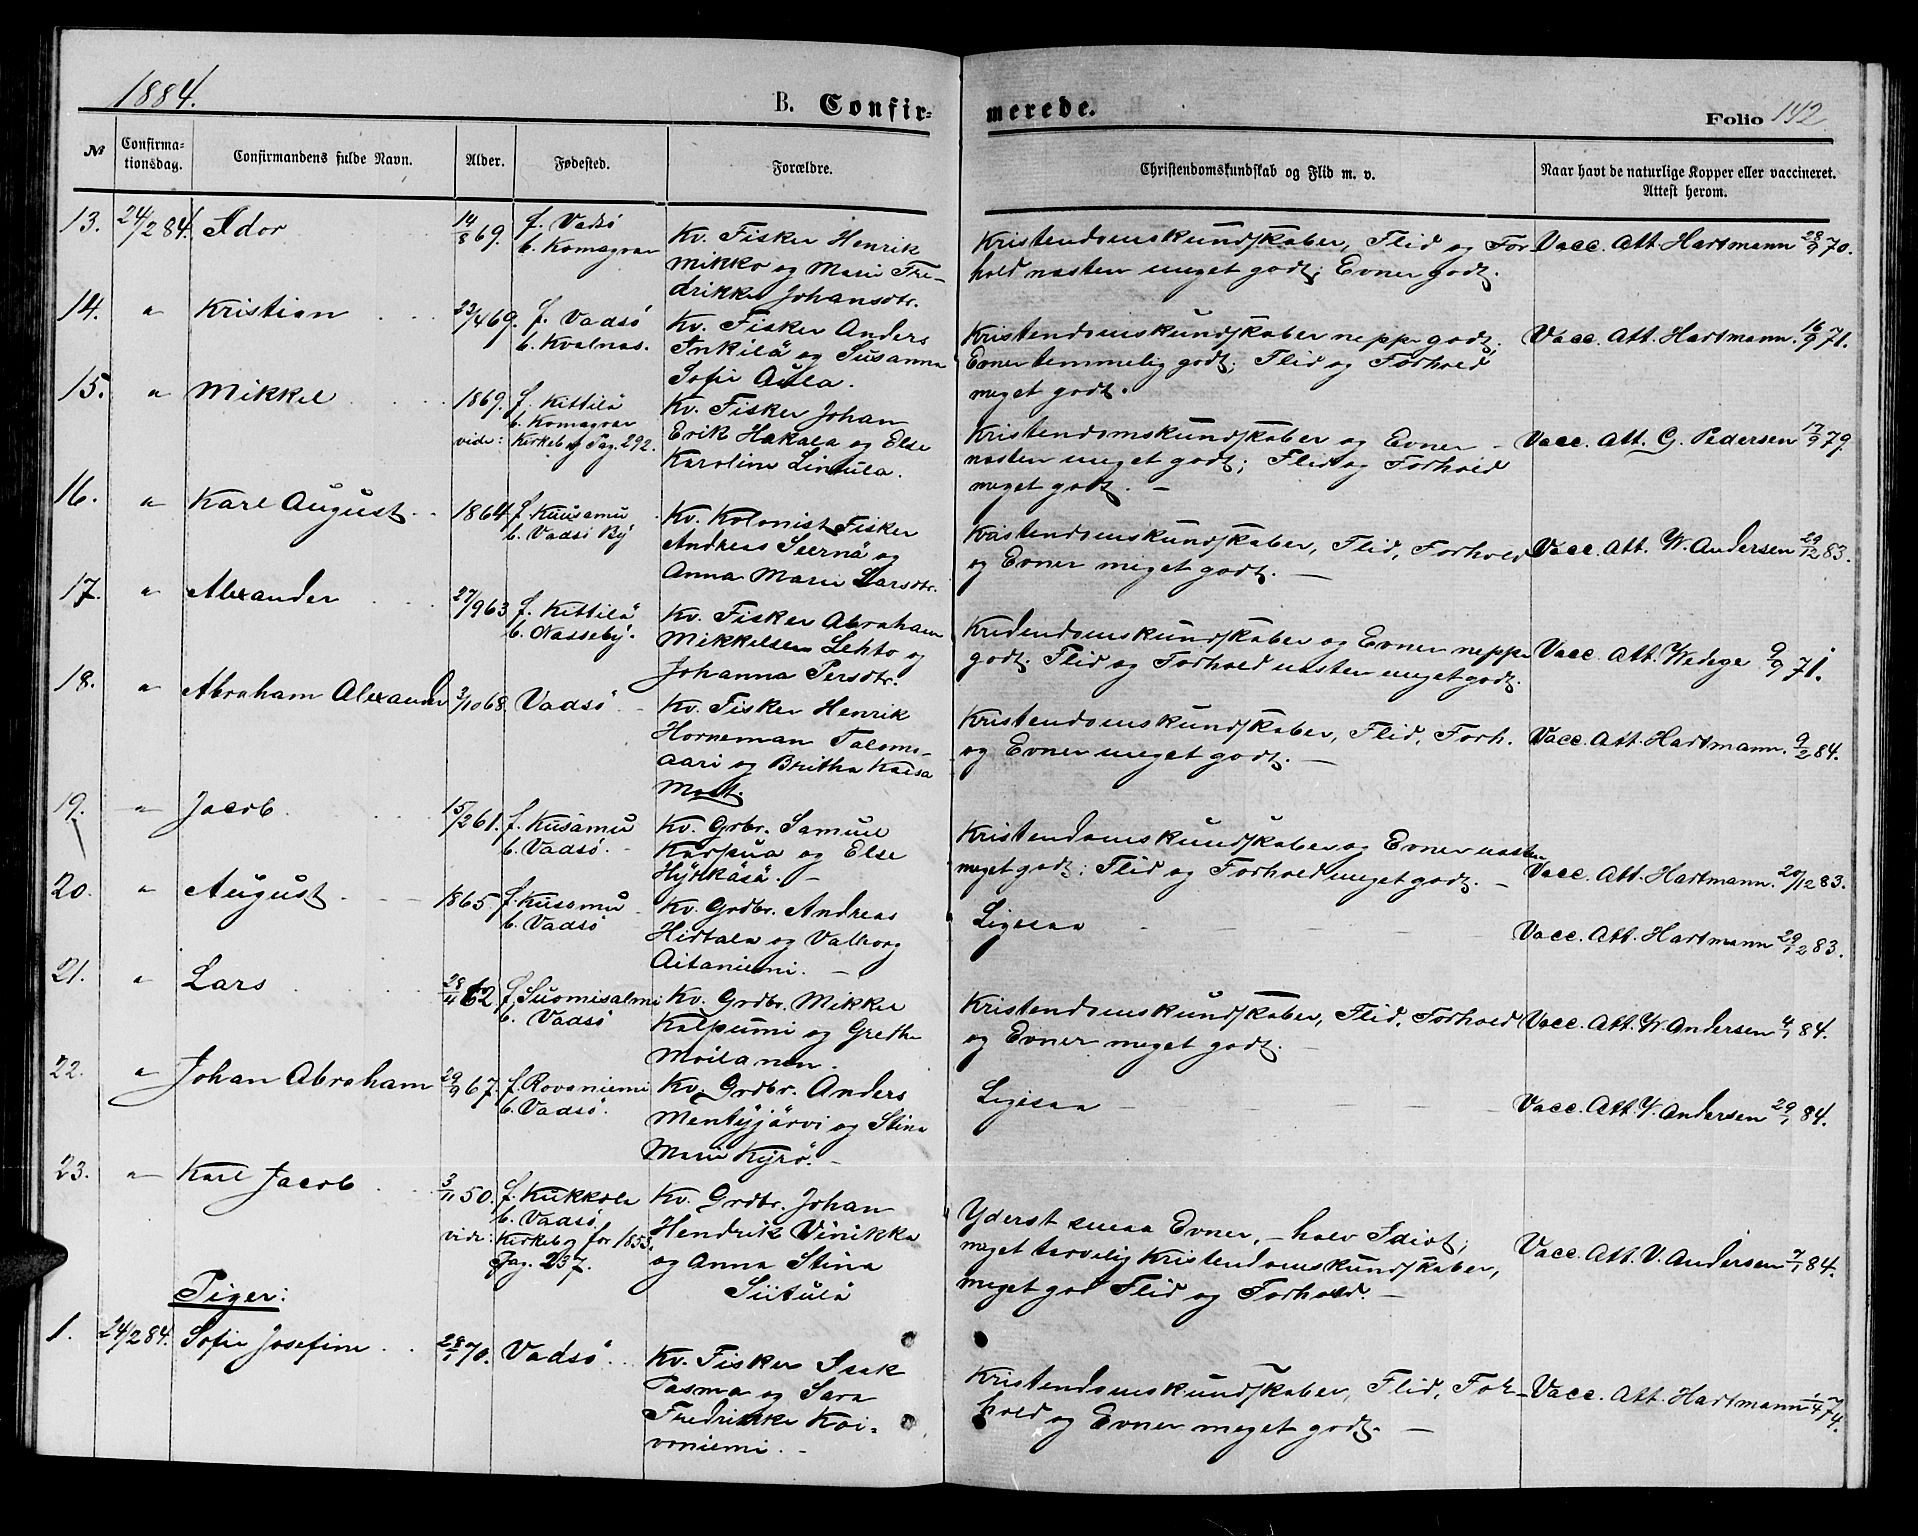 1884.
B. Confir-
merede.
Folio 142
№
Confirma-
tionsdag.
Confirmandens fulde Navn.
Alder.
Fødested.
Forældre.
Christendomskundskab og Flid m. v.
Naar havt de naturlige Kopper eller vaccineret.
Attest herom.
13. 24/2 84. Ador 14/8 69. f. Vadsö
b. Komagvær
Kv. Fisker Henrik
Mikko og Marie Fre-
drikke Johansdtr.
Kristendomskundskaber, Flid og For-
hold næsten meget godt; Evner godt.
Vacc. Att. Hartmann 28/9 70.
14. " Kristian 23/4 69. f. Vadsö
b. Kvalnæs.
Kv. Fisker Anders
Inkilä og Susanna
Sofie Aula.
Kristendomskundskaber neppe godt;
Evner temmelig godt; Flid og Forhold
meget godt.
Vacc. Att. Hartmann. 16/9 71.
15. " Mikkel 1869. f. Kittilä
b. Komagvær
vide: Kirkebog Pag. 292.
Kv. Fisker Johan
Erik Hakala og Else
Karoline Lintula.
Kristendomskundskaber og Evner
næsten meget godt; Flid og Forhold
meget godt. —
Vacc. Att. G. Pedersen 17/9 79.
16. " Karl August 1864. f. Kuusamu
b. Vadsö By
Kv. Kolonist Fisker
Andreas Seernä og
Anna Marie Larsdtr.
Kristendomskundskaber, Flid, Forhold
og Evner meget godt. —
Vacc. Att. W. Andersen 29/12 83.
17. " Alexander 27/9 63 f. Kittilä
b. Næsseby.
Kv. Fisker Abraham
Mikkelsen Lehto og
Johanna Persdtr.
Kristendomskundskaber og Evner neppe
godt. Flid og Forhold næsten meget godt.
Vacc. Att. Wedege 9/9 71.
18. " Abraham Alexander 3/10 68. Vadsö
Kv. Fisker Henrik
Horneman Talome-
aari og Britha Kaisa
Most.
Kristendomskundskaber, Flid, Forh.
og Evner meget godt. —
Vacc. Att. Hartmann. 9/2 84.
19. " Jacob 15/2 61. f. Kusamu
b. Vadsö.
Kv. Grbr. Samuel
Karpua og Else
Hyrkäsä. —
Kristendomskundskaber og Evner næsten
meget godt; Flid og Forhold meget godt. —
Vacc. Att. Hartmann. 20/12 83.
20. " August 1865. f. Kusamu
b. Vadsö
Kv. Grdbr. Andreas
Hirtala og Valborg
Aitaniemi. —
Ligesaa
Vacc. Att. Hartmann 29/12 83.
21. " Lars 28/11 62. f. Suomisalmi
b. Vadsö
Kv. Grdbr. Mikkel
Kalpumi og Grethe
Moilanen.
Kristendomskundskaber, Flid, Forhold
og Evner meget godt. —
Vacc. Att. W. Andersen 4/1 84.
22. " Johan Abraham 29/9 67. f. Rovaniemi
b. Vadsö.
Kv. Grdbr. Anders
Mentyjärvi og Stina
Marie Kyrö. —
Ligesaa
Vacc. Att. V. Andersen 29/1 84.
23. " Karl Jacob 3/11 50. f. Kukkola
b. Vadsö.
vide: Kirkebog for 1853.
Pag. 237.
Kv. Grdbr. Johan
Hendrik Vinikka
og Anna Stina
Siitula
Yderst smaa Evner, – halv Idiot;
meget tarvelig Kristendomskundskaber,
meget god Flid og Forhold. —
Vacc. Att. V. Andersen 7/1 84.
Piger:
1. 24/2 84. Sofie Josefine 28/1 70. Vadsö
Kv. Fisker Isak
Pasma og Sara
Fredrikke Koi-
voniemi. —
Kristendomskundskaber, Flid, For-
hold og Evner meget godt. —
Vacc. Att. Hartmann 1/4 74.